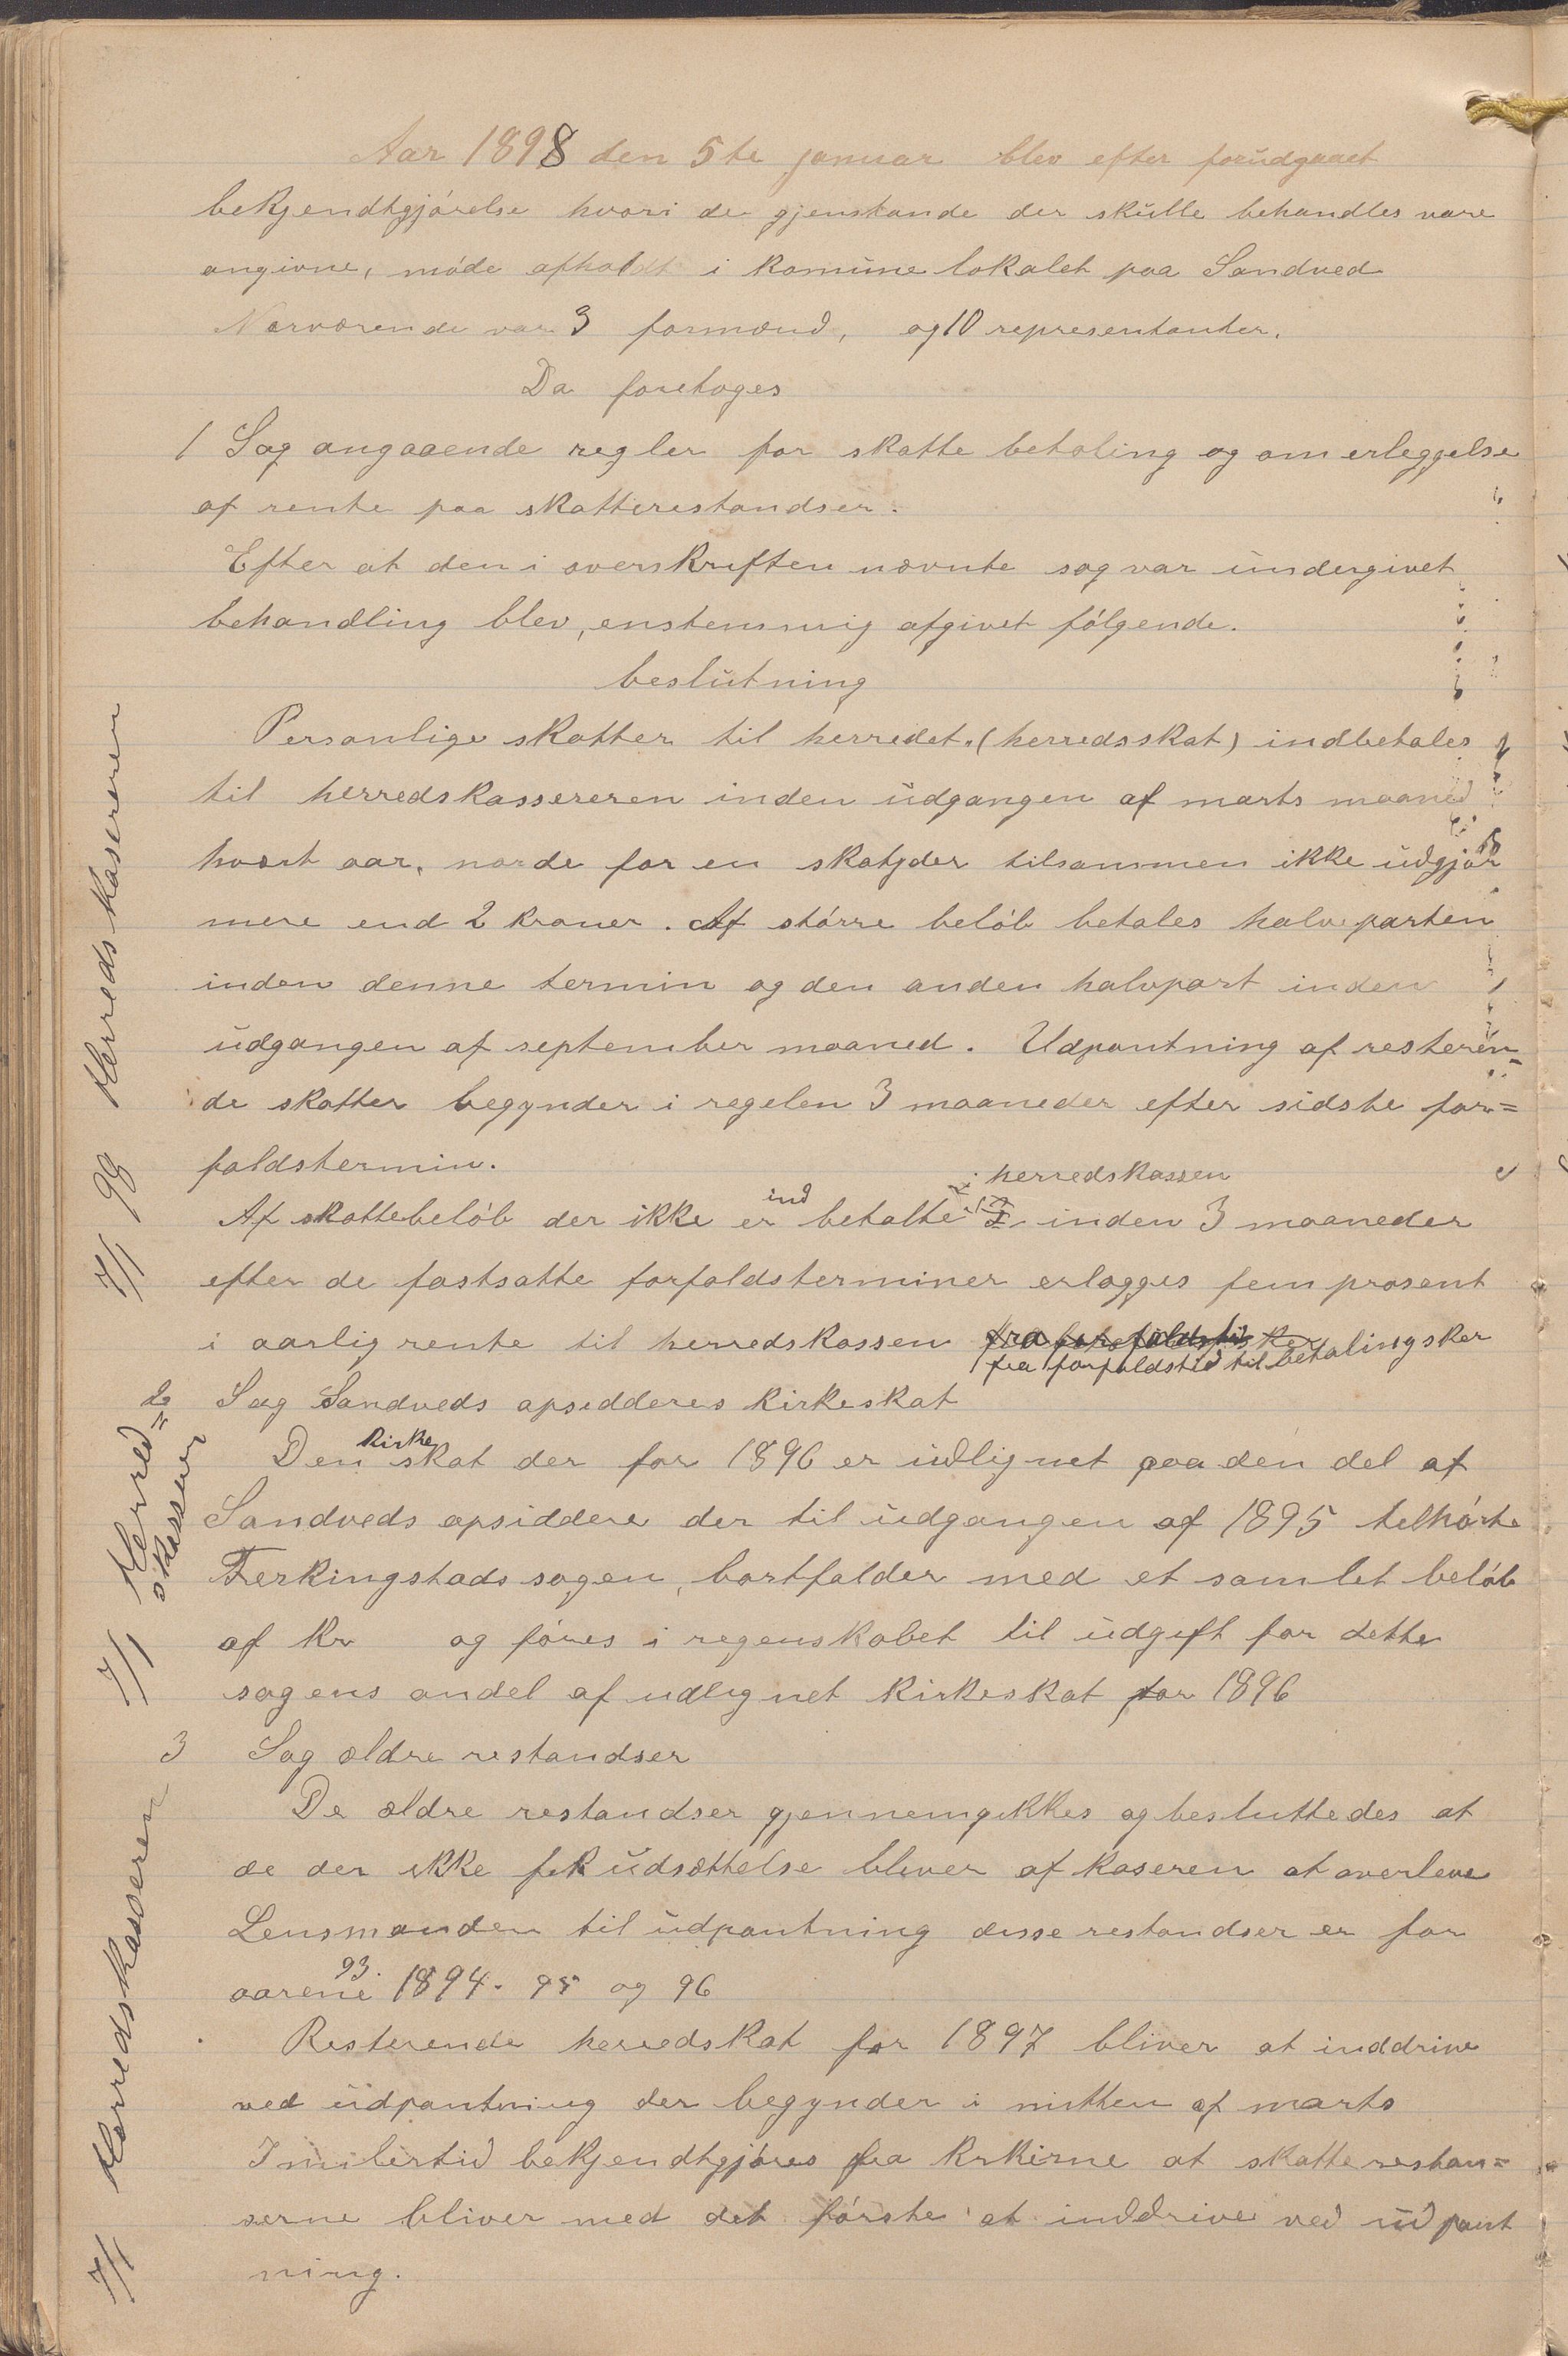 Aar 1898 den 5te januar blev efter forudgaaet
bekjendtgjørelse hvori de gjenstande der skulle behandles vare
angivne, møde afholdt i komunelokalet paa Sandved
Nærværende var 3 formænd, og 10 representanter.
Da foretoges
1 Sag angaaende regler for skatte betaling og om erleggelse
af rente paa skatterestandser.
Efter at den i overskriften nævnte sag var undergivet
behandling blev, enstemmig afgivet følgende.
beslutning
Personlige skatter til herredet. (herredsskat) indbetales
til herredskassereren inden udgangen af marts maaned
hvært aar, naar de for en skatyder tilsammen ikke udgjør
mere end 2 kroner. Af større beløb betales halvparten
inden denne termin og den anden halvpart inden
udgangen af september maaned. Udpantning af resteren-
de skatter begynder i regelen 3 maaneder efter sidste for=
faldstermin.
i herredskassen
Af skattebeløb der ikke er ind betalte inden 3 maaneder
efter de fastsatte forfaldsterminer erlægges fem prosent
i aarlig rente til herredskassen fra forfaldstid
fra forfaldstid til betaling sker
2 Sag Sandveds opsidderes kirkeskat
Den kirke skat der for 1896 er udlignet paa den del af
Sandveds opsiddere der til udgangen af 1895 tilhørte
Ferkingstads sogen, bortfalder med et samlet beløb
af kr og føres i regenskabet til udgift for dette
sogens andel af udlignet kirkeskat for 1896
3 Sag ældre restandser
De ældre restandser gjennemgikkes og besluttedes at
de der ikke fik udsættelse bliver af kaseren at overleve
Lensmanden til udpantning disse restandser er for
aarene 93. 1894. 95 og 96
Resterende herredskat for 1897 bliver at inddrive
ved udpantning der begynder i mitten af marts
Imilertid bekjendtgjøres fra kirkerne at skatterestan=
serne bliver med det første at inddrive ved udpant
ning.
7/1 98 Herredskasereren
7/1 Herred=
skasserer
7/1 Herredskasseren